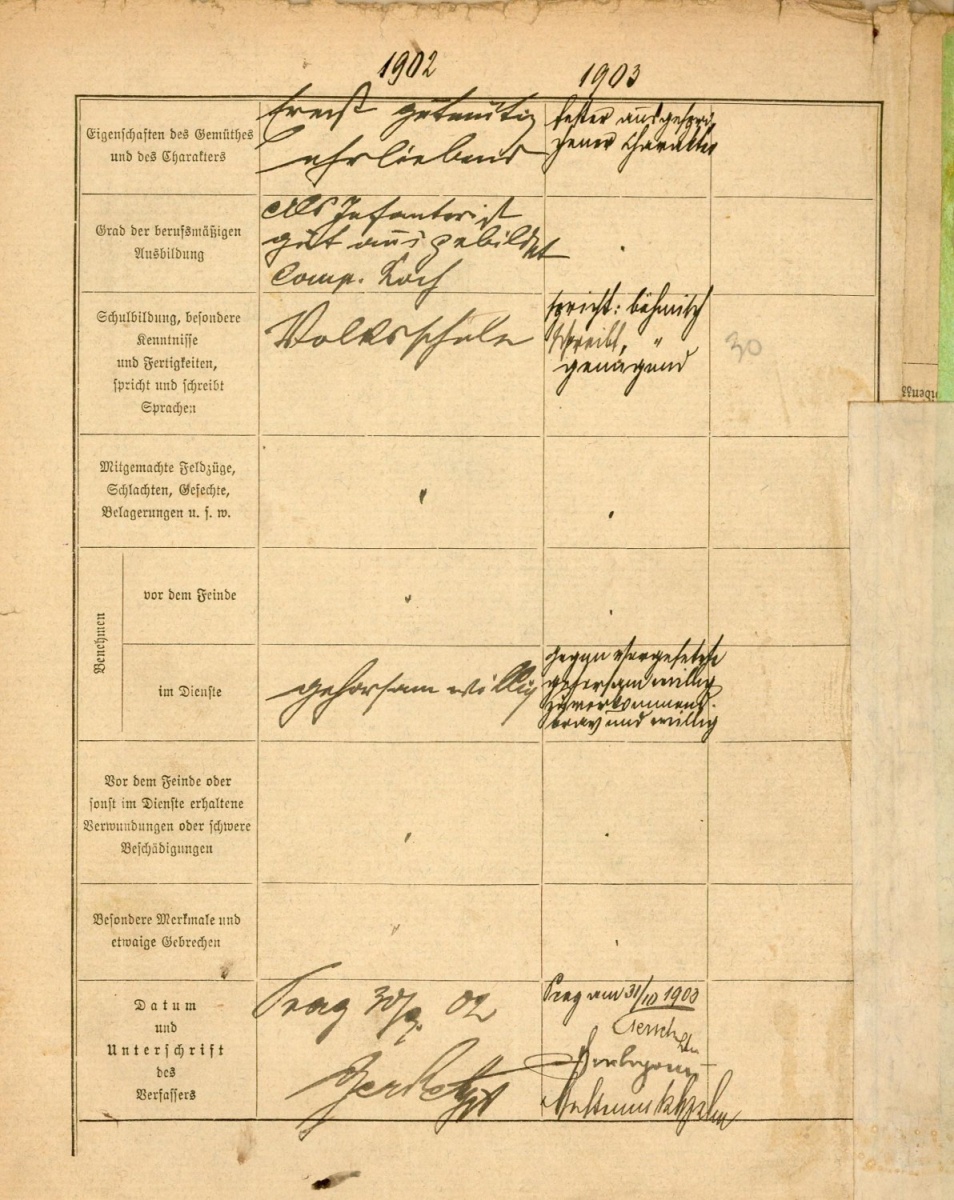 1902
1903
Eigenschaften des Gemüthes
und des Charakters
Ernst gutmütig
ehrliebend
fester ausgespro-
chener Charakter
Grad der berufsmäßigen
Ausbildung
Als Infanterist
gut ausgebildet
Comp. Koch
Schulbildung, besondere
Kenntnisse
und Fertigkeiten,
spricht und schreibt
Sprachen
Volksschule
spricht: böhmisch
schreibt, "
genügend
30
Mitgemachte Feldzüge,
Schlachten, Gefechte,
Belagerungen u. s. w.
Benehmen
vor dem Feinde
im Dienste
gehorsam willig
gegen Vorgesetzte
gehorsam willig
zuvorkommend.
brav und willig
Vor dem Feinde oder
sonst im Dienste erhaltene
Verwundungen oder schwere
Beschädigungen
Besondere Merkmale und
etwaige Gebrechen
Datum
und
Unterschrift
des
Verfassers
Prag 30/9. 02
Prag am 31/10 1903